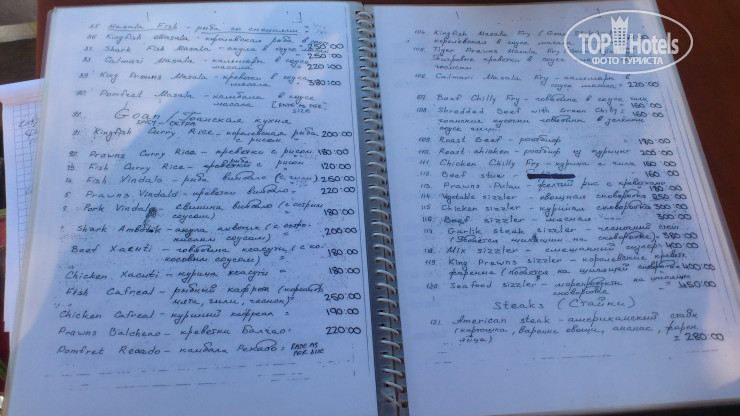 85 Masala Fish - рыба со специями
86 Kingfish Masala - королевская рыба в
соусе 250:00
Shark Fish Masala - акула в соусе
масала 250:00
Calmari Masala - кальмары в
соусе 220:00
89 King Prawns Masala - креветки в соусе
масала 380:00
90 Pomfret Masala - камбала в соусе
масала
Goan - Гоанская кухня
91 Kingfish Curry Rice - королевская рыба 200:00
с рисом
92 Prawns Curry Rice - креветки с рисом 180:00
Fish Curry Rice - рыба с рисом 120:00
Fish Vindalo - рыба виндало (с чили) 250:00
Prawns Vindalo - креветки виндало 220:00
Pork Vindalo - свинина виндало (с острым
соусом) 180:00
Shark Ambotek - акула амботик (с остро-
кислым соусом) 200:00
Beef Xacuti - говядина ксакути (с ко-
косовым соусом) 180:00
Chicken Xacuti - курица ксакути 180:00
Fish Cafreal - рыбный кафреал
мята, чили, чеснок) 250:00
Chicken Cafreal - куриный кафреал 190:00
Prawns Balchao - креветки Балчао 220:00
Pomfret Recado - камбала Рекадо = RATE AS
PER SIZE
104. Kingfish Masala Fry
105. Tiger Prawns Masala Fry
106 Calmari Masala Fry - кальмары в
соусе масала = 220:00
107. Beef Chilly Fry - говядина в соусе чили 160:00
108. Shredded Beef with Green Chilly 160:00
тонкими кусочки говядина в зелёном
соусе чили
109. Roast Beef - ростбиф 180:00
110. Roast chicken - ростбиф из курицы 200:00
111. Chicken Chilly Fry - курица с чили 160:00
112. Beef stew - 160:00
113. Prawns Pulau - желтый рис с креветками 180:00
114. Vegetable sizzler - овощная сковородка 250:00
115 Chicken sizzler - куриная сковородка 300:00
116 Beef sizzler - мясная 300:00
117. Garlik steak sizzler - чесночный стейк
(подаётся шкварчащим на сковородке) 380:00
118. Mix sizzler - смешанный сизлер 400:00
119. King Prawns sizzler - королевские креветки
жареные (подаются на шипящей сковородке) 400:00
120. Seafood sizzler - морепродукты на шипящей
сковородке = 450:00
Steaks (Стейки)
121. American steak - американский стейк
(картошка, вареные овощи, ананас, жарен.
яйцо) = 280:00
TOP Hotels
ФОТО ТУРИСТА